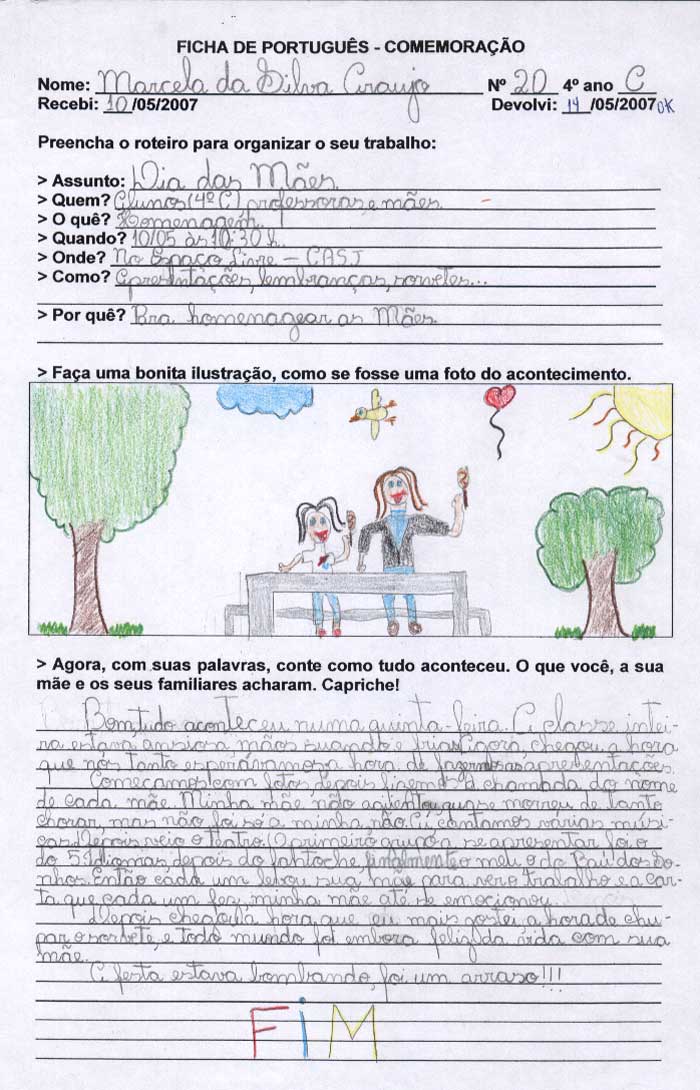 FICHA DE PORTUGUÊS - COMEMORAÇÃO
Nome: Marcela da Silva Araujo Nº 20 4º ano C
Recebi: 10/05/2007 Devolvi: 14/05/2007 OK
Preencha o roteiro para organizar o seu trabalho:
> Assunto: Dia das Mães.
> Quem? Alunos (4º C) professoras, e mães.
> O quê? Homenagem.
> Quando? 10/05 às 10:30 h.
> Onde? No Espaço Livre - CASJ
> Como? Apresentações, lembranças, sorvetes...
> Por quê? Pra homenagear as Mães.
> Faça uma bonita ilustração, como se fosse uma foto do acontecimento.
> Agora, com suas palavras, conte como tudo aconteceu. O que você, a sua
mãe e os seus familiares acharam. Capriche!
Bom, tudo aconteceu numa quinta-feira. A classe intei-
ra estava ansiosa, mãos suando e frias. Agora, chegou a hora
que nós tanto esperávamos a hora de fazermos as apresentações.
Começamos com fotos, depois fizemos a chamada do nome
de cada mãe. Minha mãe não aguentou, quase morreu de tanto
chorar, mas não foi só a minha não. Aí, cantamos várias músi-
cas. Depois veio o teatro. O primeiro grupo a se apresentar foi o
do 5 Idiomas, depois do fantoche, finalmente o meu o do Baú dos So-
nhos. Então cada um levou sua mãe para ver o trabalho e a car-
ta que cada um fez, minha mãe até se emocionou.
Depois chegou a hora que eu mais gostei a hora de chu-
par o sorvete, e todo mundo foi embora feliz da vida com sua
mãe.
A festa estava bombando, foi um arraso!!!
FIM